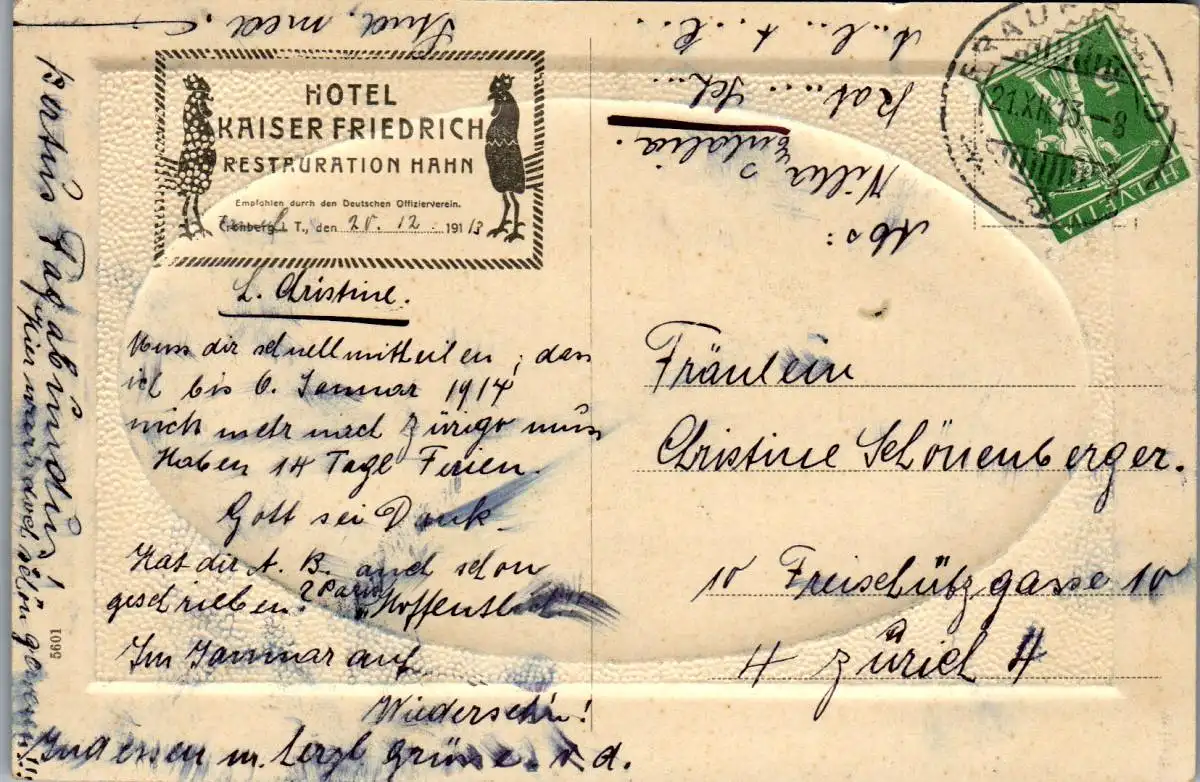 HOTEL
KAISER FRIEDRICH
RESTAURATION HAHN
Empfohlen durch den Deutschen Offizierverein.
Cronberg i. T., den 20. 12. 1913
L. Christine.
Muss dir schnell mitteilen, dass
ich bis 6. Januar 1914
nicht mehr nach Zürigo muss
Haben 14 Tage Ferien.
Gott sei Dank.
Hat dir A. B. auch schon
geschrieben? Paris
"Hoffentlich"
Im Januar auf
Wiederseh'n!
Indessen m. herzl Grüsse v. d.
Stud. med.
Abs:
FRAUENFELD
21.XII.13-8
HELVETIA
5
Fräulein
Christine Schönenberger.
10 Freischützgasse 10
4 Zürich 4
5601
hier wars doch schön gewesen!!